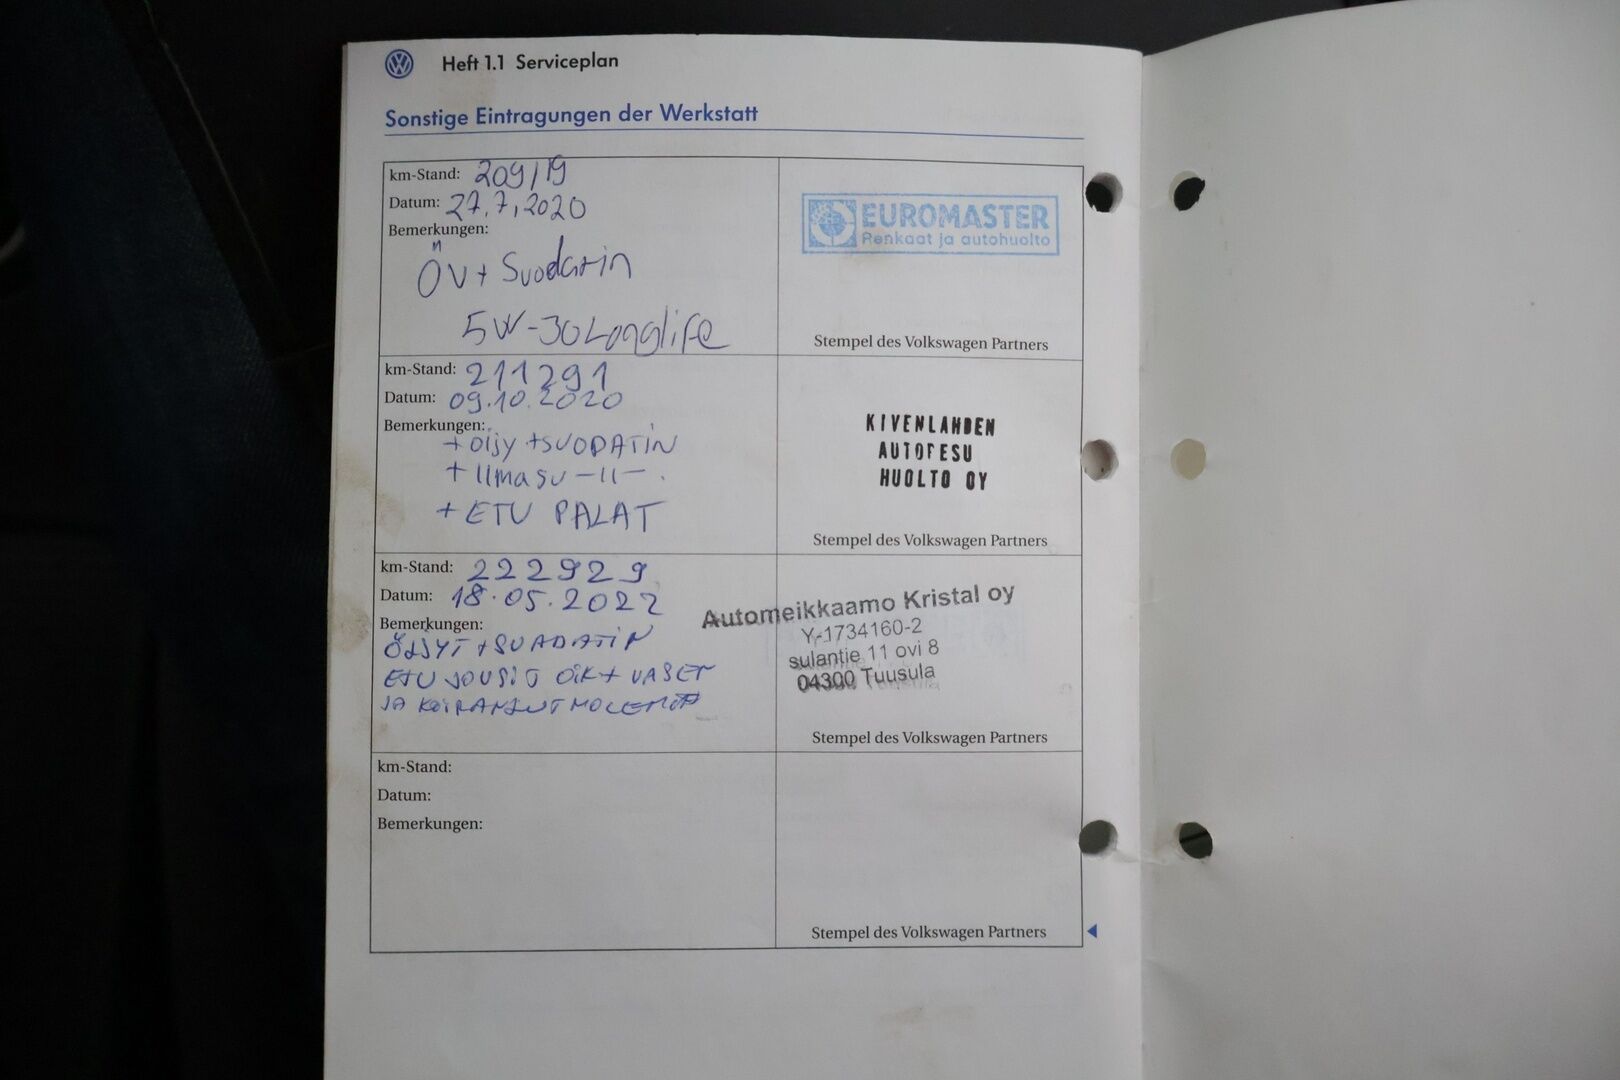 Heft 1.1 Serviceplan
Sonstige Eintragungen der Werkstatt
km-Stand: 209119
Datum: 27.7.2020
Bemerkungen:
ÖV + Suodatin
5W-30 Longlife
EUROMASTER
Renkaat ja autohuolto
Stempel des Volkswagen Partners
km-Stand: 211291
Datum: 09.10.2020
Bemerkungen:
+ Öljy + SUODATIN
+ Ilmasu -11- .
+ ETU PALAT
KIVENLAHDEN
AUTOPESU
HUOLTO OY
Stempel des Volkswagen Partners
km-Stand: 222929
Datum: 18.05.2022
Bemerkungen:
ÖLJYT + SUADATIN
ETU JOUSIT OIK + VASEN
JA MOLEMAT
Automeikkaamo Kristal oy
Y-1734160-2
sulantie 11 ovi 8
04300 Tuusula
Stempel des Volkswagen Partners
km-Stand:
Datum:
Bemerkungen:
Stempel des Volkswagen Partners